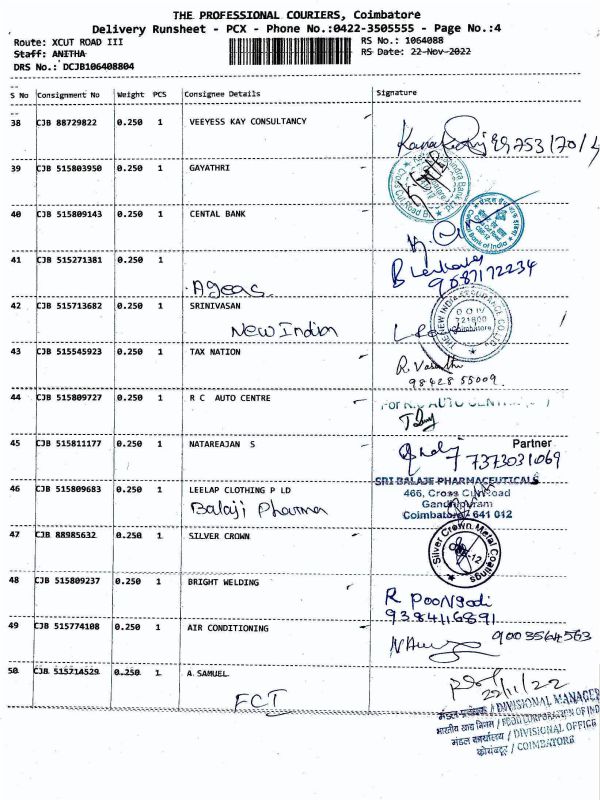 THE PROFESSIONAL COURIERS, Coimbatore
Delivery Runsheet - PCX - Phone No.:0422-3505555 - Page No.:4
Route: XCUT ROAD III RS No.: 1064088
Staff: ANITHA RS Date: 22-Nov-2022
DRS No.: DCJB106408804
S No Consignment No Weight PCS Consignee Details Signature
38 CJB 88729822 0.250 1 VEEYESS KAY CONSULTANCY
39 CJB 515803950 0.250 1 GAYATHRI
40 CJB 515809143 0.250 1 CENTAL BANK
41 CJB 515271381 0.250 1
Ageas
9087172234
42 CJB 515713682 0.250 1 SRINIVASAN
New Indian
THE NEW INDIA ASSURANCE CO. LTD
721800
Coimbatore
43 CJB 515545923 0.250 1 TAX NATION
R. Vasanthi
98428 55009
44 CJB 515809727 0.250 1 R C AUTO CENTRE
45 CJB 515811177 0.250 1 NATAREAJAN S
Partner
7373031069
46 CJB 515809683 0.250 1 LEELAP CLOTHING P LD
Balaji Pharma
SRI BALAJE PHARMACEUTICALS
466, Cross Cut Road
Gandhipuram
Coimbatore - 641 012
47 CJB 88985632 0.250 1 SILVER CROWN
Silver Crown Metal Coatings
CBE-12
48 CJB 515809237 0.250 1 BRIGHT WELDING
R Poongodi
9384116891
49 CJB 515774108 0.250 1 AIR CONDITIONING
9003564563
50 CJB 515714529 0.250 1 A SAMUEL
FCI
22/11/22
मंडल प्रबंधक / DIVISIONAL MANAGER
भारतीय खाद्य निगम / FOOD CORPORATION OF IND
मंडल कार्यालय / DIVISIONAL OFFICE
कोयंबटूर / COIMBATORE